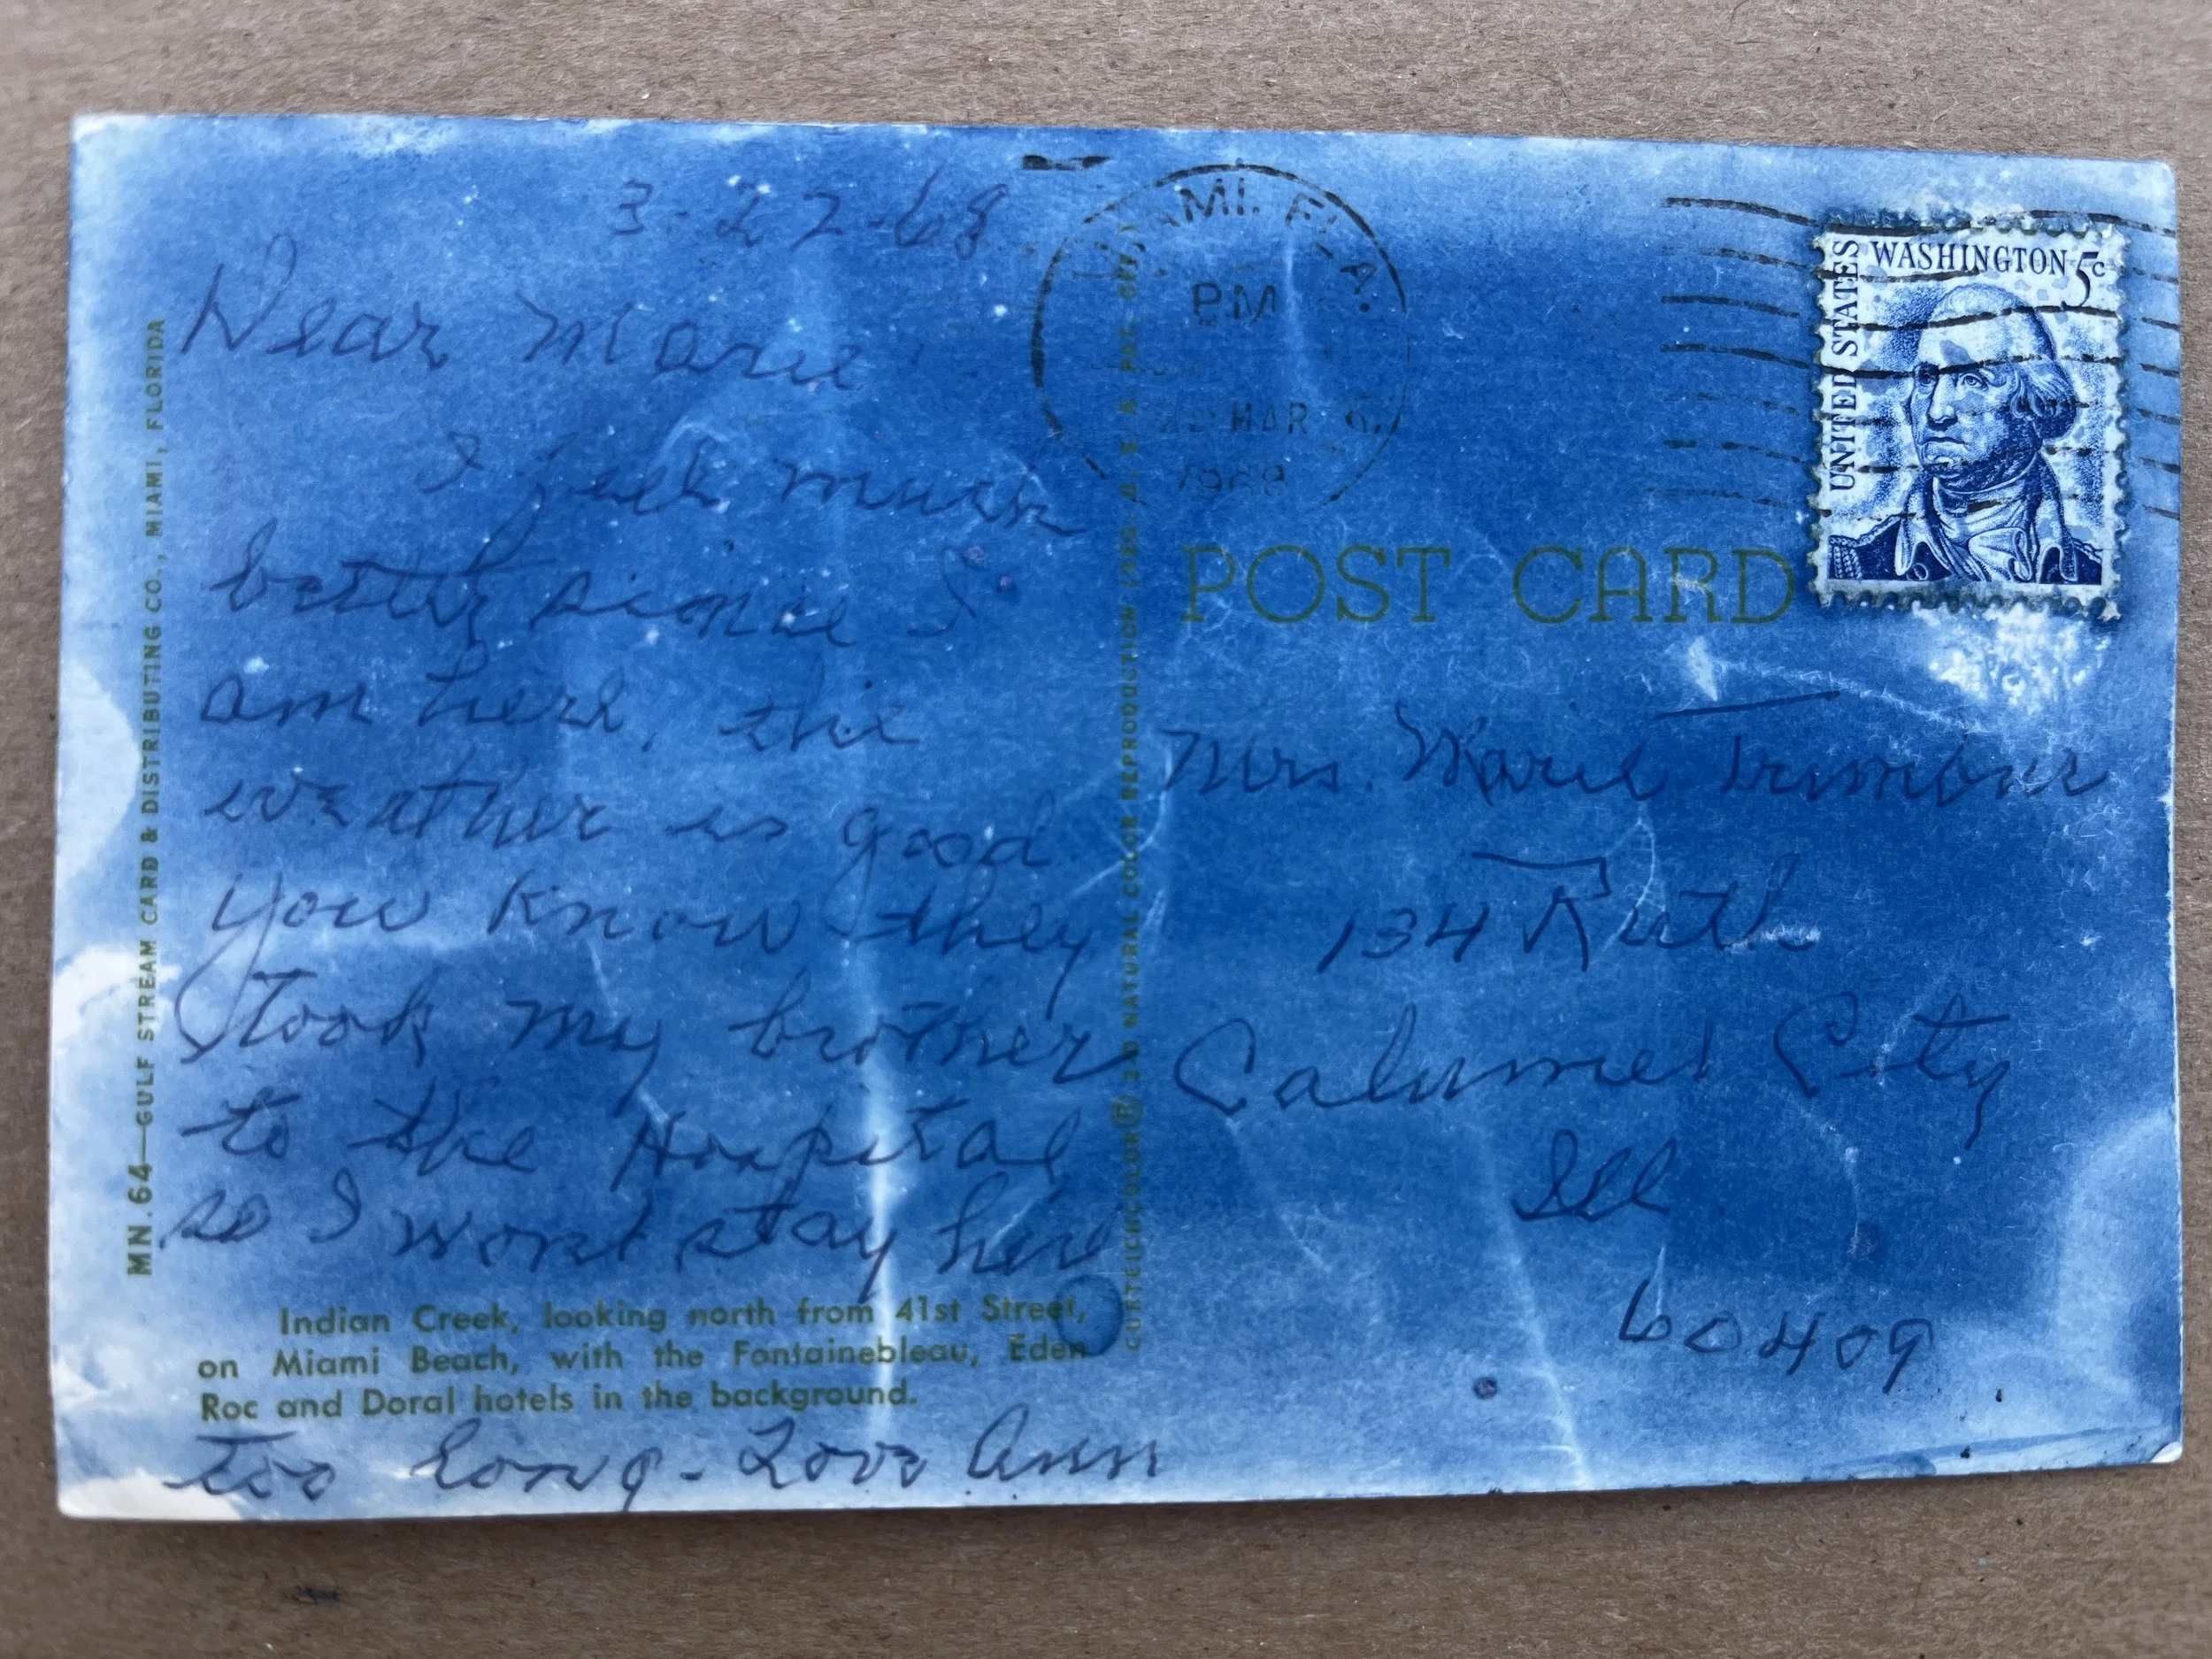 3-27-68
Dear Marie
I feel much
better since I
am here, the
weather is good
you know they
took my brother
to the Hospital
so I wont stay here
too long - Love Ann
Indian Creek, looking north from 41st Street,
on Miami Beach, with the Fontainebleau, Eden
Roc and Doral hotels in the background.
MN.64—GULF STREAM CARD & DISTRIBUTING CO., MIAMI, FLORIDA
CURTEICHCOLOR® 3-D NATURAL COLOR REPRODUCTION (REG. U. S. A. PAT. OFF.)
MIAMI, FLA.
PM
MAR
1968
UNITED STATES
WASHINGTON 5c
POST CARD
Mrs. Marie
134 Ruth
Calumet City
Ill
60409